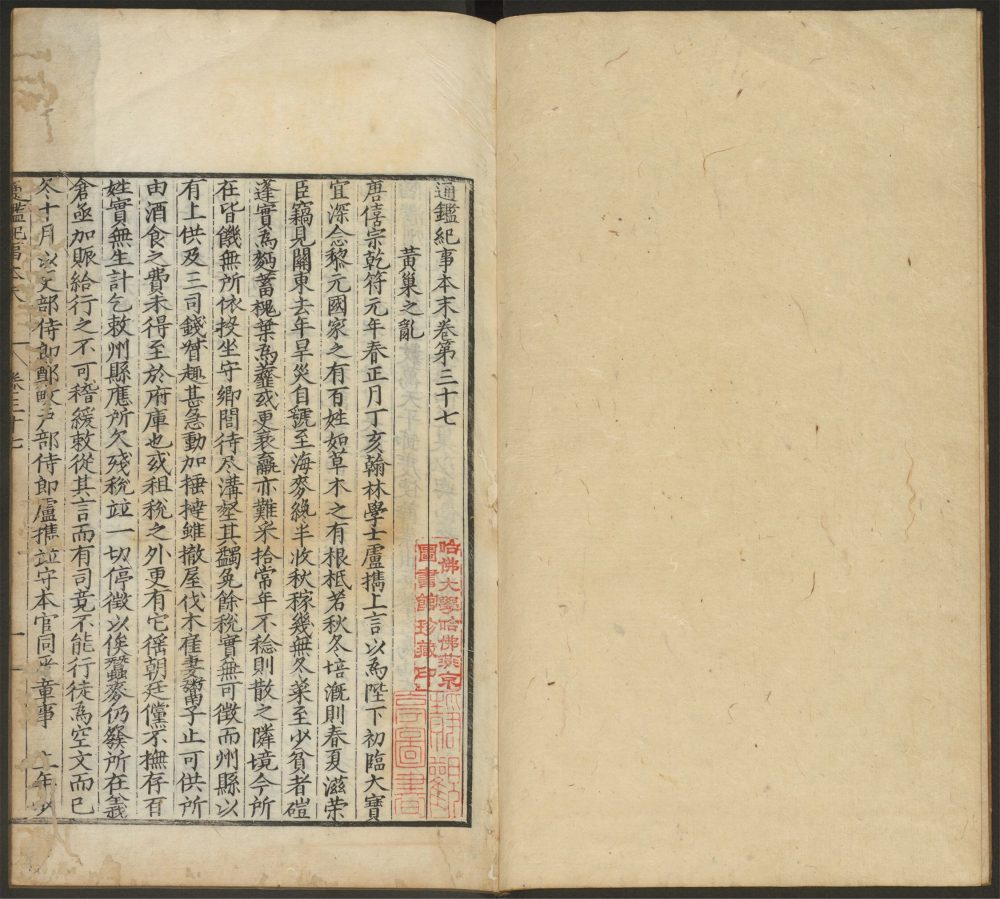 通鑑紀事本末卷第三十七
黃巢之亂
唐僖宗乾符元年春正月丁亥翰林學士盧攜上言以爲陛下初臨大寶
宜深念黎元國家之有百姓如草木之有根柢若秋冬培漑則春夏滋荣
臣竊見關東去年旱災自虢至海麥纔半收秋稼幾無冬菜至少貧者磑
蓬實爲麪蓄槐葉爲虀或更衰羸亦難采拾常年不稔則散之隣境今所
在皆饑無所依投坐守鄉閭待尽溝壑其蠲免餘稅實無可徵而州縣以
有上供及三司錢督趣甚急動加捶撻雖撤屋伐木雇妻鬻子止可供所
由酒食之費未得至於府庫也或租稅之外更有它徭朝廷儻不撫存百
姓實無生計乞敕州縣應所欠殘稅竝一切停徵以俟蠶麥仍發所在義
倉亟加賑給行之不可稽緩敕從其言而有司竟不能行徒爲空文而已
冬十月以文部侍郎鄭畋戶部侍郎盧攜竝守本官同平章事 上年少
通鑑紀事本末 卷三十七 一
哈佛大學哈佛燕京
圖書館珍藏印